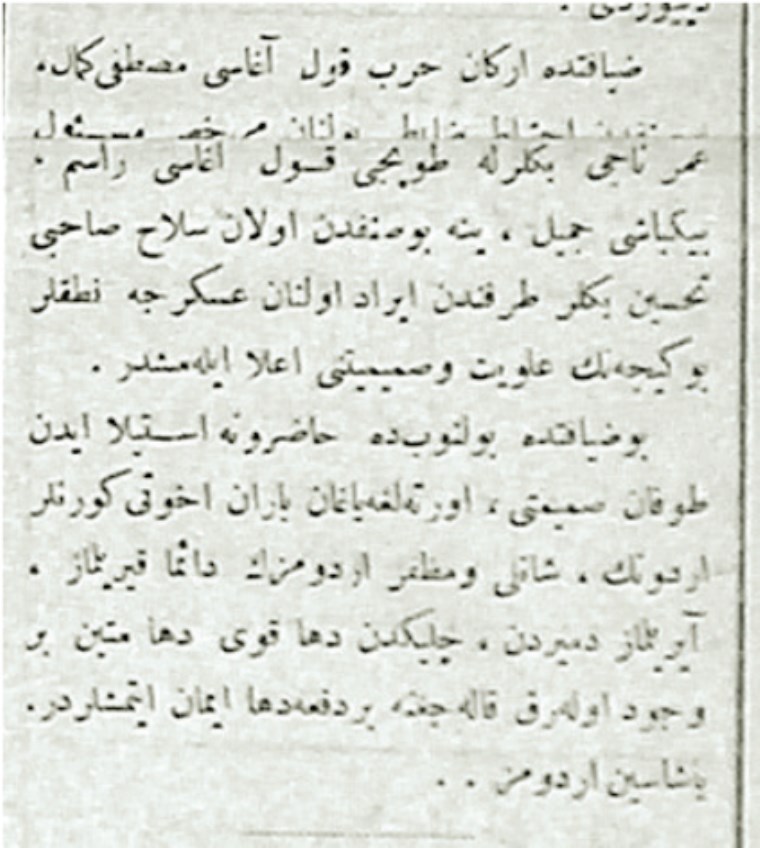 دییوردی .
ضیافتده اركان حرب قول آغاسی مصطفی كمال،
احتیاط ضابطی بولنان مرخص مسئول
عمر ناجی بكلرله طوپجی قول آغاسی راسم .
بیكباشی جمیل ، ینه بوصنفدن اولان سلاح صاحبی
تحسین بكلر طرفندن ایراد اولنان عسكرجه نطقلر
بوكیجه‌نك علویت وصمیمیتنی اعلا ایله‌مشدر .
بوضیافتده بولنوب‌ده حاضرونه استیلا ایدن
طوفان صمیمتی ، اورته‌لغه‌یاغان باران اخوتی كورنلر
اردونك ، شانلی ومظفر اردومزك دائما قیریلماز ،
آیریلماز دمیردن ، چلیكدن دها قوی دها متین بر
وجود اوله‌رق قاله‌جغنه بردفعه‌دها ایمان ایتمشلردر.
یشاسین اردومز . .